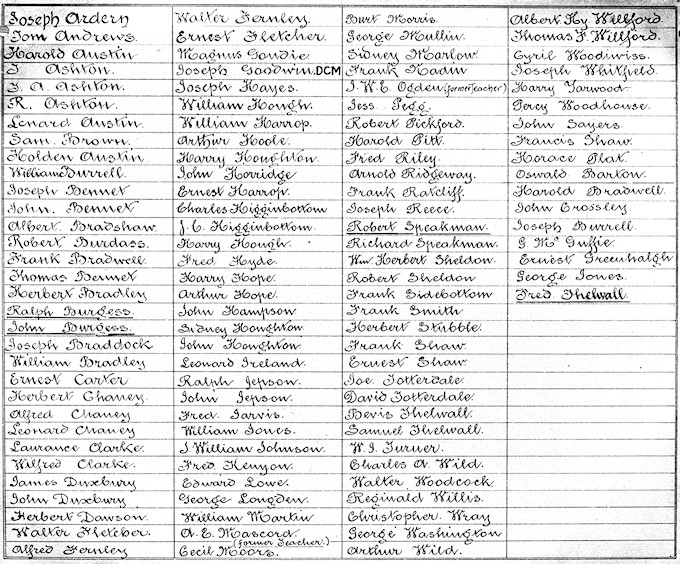 Joseph Ardern
Tom Andrews.
Harold Austin
J. Ashton.
J. A. Ashton.
R. Ashton.
Lenard Austin.
Sam. Brown.
Holden Austin.
William Burrell.
Joseph Bennet
John. Bennet
Albert Bradshaw.
Robert Burdass.
Frank Bradwell.
Thomas Bennet
Herbert Bradley
Ralph Burgess.
John Burgess.
Joseph Braddock
William Bradley
Ernest Carter
Herbert Chaney.
Alfred Chaney
Leonard Chaney
Laurance Clarke.
Wilfred Clarke.
James Duxbury
John Duxbury
Herbert Dawson.
Walter Fletcher.
Alfred Fernley
Walter Fernley.
Ernest Fletcher.
Magnus Goudie.
Joseph Goodwin. DCM
Joseph Hayes.
William Hough.
William Harrop.
Arthur Hoole.
Harry Houghton
John Horridge
Ernest Harrop.
Charles Higginbottom
J. C. Higginbottom
Harry Hough.
Fred Hyde.
Harry Hope.
Arthur Hope.
John Hampson
Sidney Houghton
John Houghton
Leonard Ireland.
Ralph Jepson.
John Jepson.
Fred. Jarvis.
William Jones.
J. William Johnson.
Fred. Kenyon.
Edward Lowe.
George Longden.
William Martin
A. E. Mascord.
(former Teacher.)
Cecil Moors.
Burt Morris.
George Mullin.
Sidney Marlow.
Frank Nadin
J. W. E. Ogden (former Teacher)
Jess. Pegg.
Robert Pickford.
Harold Pitt.
Fred Riley.
Arnold Ridgeway.
Frank Ratcliff.
Joseph Reece.
Robert Speakman.
Richard Speakman.
Wm Herbert Sheldon
Robert Sheldon
Frank Sidebottom
Frank Smith
Herbert Stubble.
Frank Shaw.
Ernest Shaw.
Joe. Totterdale.
David Totterdale.
Bevis Thelwall.
Samuel Thelwall.
W. J. Turner.
Charles A. Wild.
Walter Woodcock.
Reginald Willis.
Christopher. Wray
George Washington
Arthur Wild.
Albert Hy. Willford.
Thomas F. Willford.
Cyril Woodiwiss.
Joseph Whitfield.
Harry Yarwood.
Percy Woodhouse.
John Sayers.
Francis Shaw.
Horace Plat.
Oswald Barton.
Harold Bradwell.
John Crossley.
Joseph Burrell.
G. Mc Guffie.
Ernest Greenhalgh
George Jones.
Fred Thelwall.